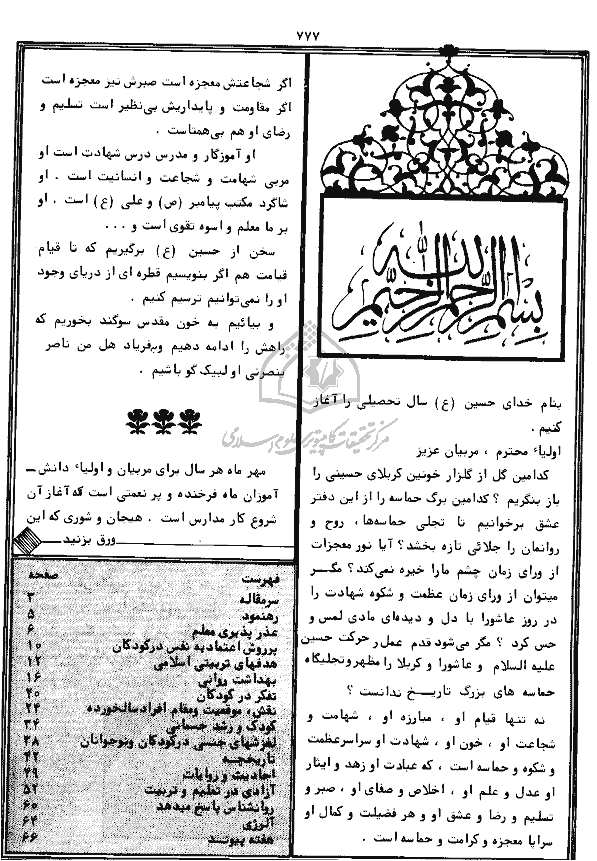 ۷۷۷
بسم الله الرحمن الرحیم
بنام خدای حسین (ع) سال تحصیلی را آغاز
کنیم .
اولیاء محترم ، مربیان عزیز
کدامین گل از گلزار خونین کربلای حسینی را
باز بنگریم ؟ کدامین برگ حماسه را از این دفتر
عشق برخوانیم تا تجلی حماسه‌ها، روح و
روانمان را جلائی تازه بخشد؟ آیا نور معجزات
از ورای زمان چشم مارا خیره نمی‌کند؟ مگر
میتوان از ورای زمان عظمت و شکوه شهادت را
در روز عاشورا با دل و دیده‌های مادی لمس و
حس کرد ؟ مگر می‌شود قدم عمل ر حرکت حسین
علیه السلام و عاشورا و کربلا را مظهر وتجلیگاه
حماسه های بزرگ تاریخ ندانست ؟
نه تنها قیام او ، مبارزه او ، شهامت و
شجاعت او ، خون او ، شهادت او سراسرعظمت
و شکوه و حماسه است ، که عبادت او زهد و ایثار
او عدل و علم او ، اخلاص و صفای او ، صبر و
تسلیم و رضا و عشق او و هر فضیلت و کمال او
سراپا معجزه و کرامت و حماسه است .
اگر شجاعتش معجزه است صبرش نیز معجزه است
اگر مقاومت و پایداریش بی‌نظیر است تسلیم و
رضای او هم بی‌همتاست .
او آموزگار و مدرس درس شهادت است او
مربی شهامت و شجاعت و انسانیت است . او
شاگرد مکتب پیامبر (ص) و علی (ع) است . او
بر ما معلم و اسوه تقوی است و ...
سخن از حسین (ع) برگیریم که تا قیام
قیامت هم اگر بنویسیم قطره ای از دریای وجود
او را نمی‌توانیم ترسیم کنیم .
و بیائیم به خون مقدس سوگند بخوریم که
راهش را ادامه دهیم وبفریاد هل من ناصر
ینصرنی او لبیک گو باشیم .
مرکز تحقیقات کامپیوتری علوم اسلامی
مهر ماه هر سال برای مربیان و اولیاء دانش‌ـ
آموزان ماه فرخنده و پر نعمتی است که آغاز آن
شروع کار مدارس است . هیجان و شوری که این
ورق بزنید
فهرست صفحه
سرمقاله ۳
رهنمود ۵
عذر پذیری معلم ۶
پرورش اعتماد به نفس درکودکان ۱۰
هدفهای تربیتی اسلامی ۱۲
بهداشت روانی ۱۶
تفکر در کودکان ۲۰
نقش، موقعیت ومقام افراد سالخورده ۲۴
کودک و رشد جسمانی ۳۴
لغزشهای جنسی درکودکان ونوجوانان ۳۸
تاریخچه ۴۲
احادیث و روایات ۴۹
آزادی در تعلیم و تربیت ۵۲
روانشناس پاسخ میدهد ۶۰
آلرژی ۶۴
هفته پیوند ۶۶